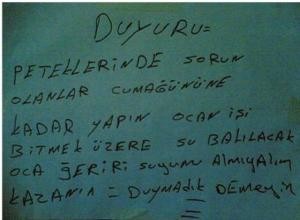 DUYURU=
PETEKLERİNDE SORUN
OLANLAR CUMAĞÜNÜNE
KADAR YAPIN OCAN iSi
BiTMEK ÜZERE SU BAKILACAK
OCA ĞERiRi SUYUNU ALMIYALIM
KAZANIN = DUYMADIK DEMEYiN